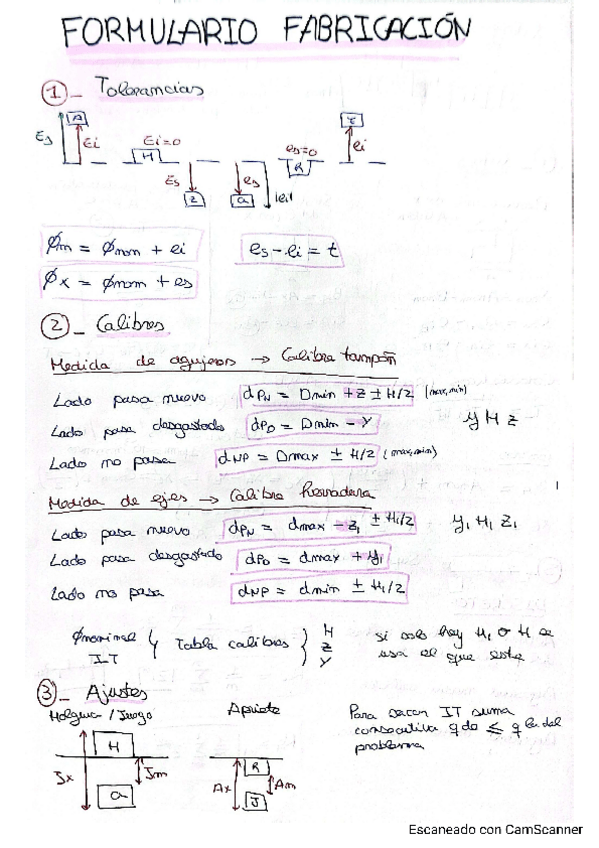 FORMULARIO FABRICACIÓN
1_ Tolerancias
Es A Ei Ei=0 H Es Z es a |ei| es=0 R t ei
Øm = Ønom + ei
es - ei = t
Øx = Ønom + es
2_ Calibres
Medida de agujeros → Calibre tampón
Lado pasa nuevo dPN = Dmin + z ± H/2 (max, min)
Lado pasa desgastado dPD = Dmin - Y y H z
Lado no pasa dNP = Dmax ± H/2 (max, min)
Medida de ejes → Calibre herradura
Lado pasa nuevo dPN = dmax - z₁ ± H₁/2 y₁ H₁ z₁
Lado pasa desgastado dPD = dmax + y₁
Lado no pasa dNP = dmin ± H₁/2
Ønominal IT } Tabla calibres } H z y
si solo hay H₁ o H se
usa el que este
3_ Ajustes
Holgura / Juego Apriete
Para sacar IT suma
consecutiva q de ≤ q la del
problema
Jx H a Jm
Ax R J Am
Escaneado con CamScanner